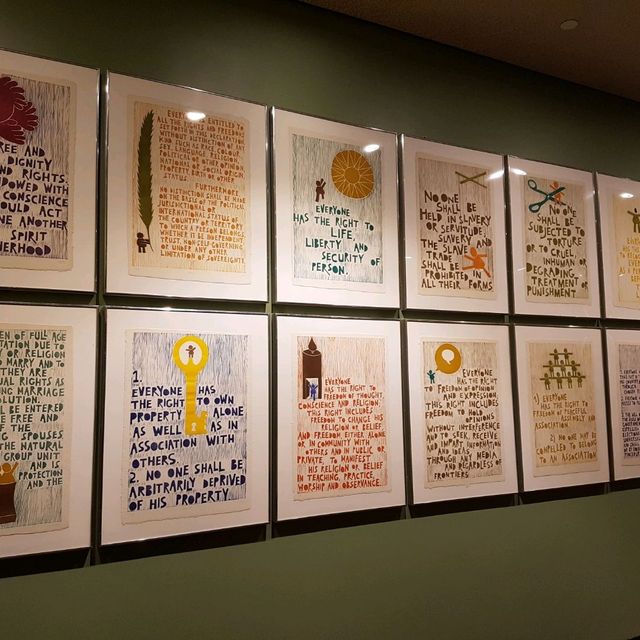 REE AND
DIGNITY
AND RIGHTS.
OWED WITH
CONSCIENCE
OULD ACT
NE ANOTHER
SPIRIT
HERHOOD
EVERYONE IS ENTITLED TO
ALL THE RIGHTS AND FREEDOMS
SET FORTH IN THIS DECLARATION
WITHOUT DISTINCTION OF ANY
KIND SUCH AS RACE COLOUR
SEX LANGUAGE RELIGION
POLITICAL OR OTHER OPINION
PROPERTY BIRTH OR OTHER
FURTHERMORE
NO DISTINCTION SHALL BE MADE
ON THE BASIS OF THE POLITICAL
INTERNATIONAL STATUS OF
THE COUNTRY OR TERRITORY
TO WHICH A PERSON BELONGS
WHETHER IT BE INDEPENDENT
TRUST, NON-SELF-GOVERNING
OR UNDER ANY OTHER
LIMITATION OF SOVEREIGNTY.
EVERYONE
HAS THE RIGHT TO
LIFE,
LIBERTY AND
SECURITY OF
PERSON.
NO ONE
SHALL BE
HELD IN SLAVERY
OR SERVITUDE,
SLAVERY AND
THE SLAVE
TRADE
SHALL BE
PROHIBITED IN
ALL THEIR FORMS
NO ONE
SHALL BE
SUBJECTED TO
TORTURE
OR TO CRUEL
INHUMAN OR
DEGRADING
TREATMENT OR
PUNISHMENT
EN OF FULL AGE
TATION DUE TO
Y OR RELIGION
O MARRY AND TO
THEY ARE
UAL RIGHTS AS
NG MARRIAGE
OLUTION.
LL BE ENTERED
E FREE AND
THE
G SPOUSES
HE NATURAL
GROUP UNIT
AND IS
PROTECTION
AND THE
1.
EVERYONE HAS
THE RIGHT TO OWN
PROPERTY ALONE
AS WELL AS IN
ASSOCIATION WITH
OTHERS.
2. NO ONE SHALL BE
ARBITRARILY DEPRIVED
OF HIS PROPERTY.
EVERYONE
HAS THE RIGHT TO
FREEDOM OF THOUGHT,
CONSCIENCE AND RELIGION.
THIS RIGHT INCLUDES
FREEDOM TO CHANGE HIS
RELIGION OR BELIEF,
AND FREEDOM, EITHER ALONE
OR IN COMMUNITY WITH
OTHERS AND IN PUBLIC OR
PRIVATE, TO MANIFEST
HIS RELIGION OR BELIEF
IN TEACHING, PRACTICE,
WORSHIP AND OBSERVANCE.
EVERYONE
HAS THE RIGHT
TO FREEDOM OF OPINION
AND EXPRESSION,
THIS RIGHT INCLUDES
FREEDOM TO HOLD
OPINIONS
WITHOUT INTERFERENCE
AND TO SEEK, RECEIVE
AND IMPART INFORMATION
AND IDEAS
THROUGH ANY MEDIA
AND REGARDLESS OF
FRONTIERS.
1) EVERYONE
HAS THE RIGHT TO
FREEDOM OF PEACEFUL
ASSEMBLY AND
ASSOCIATION
2) NO ONE MAY BE
COMPELLED TO BELONG
TO AN ASSOCIATION